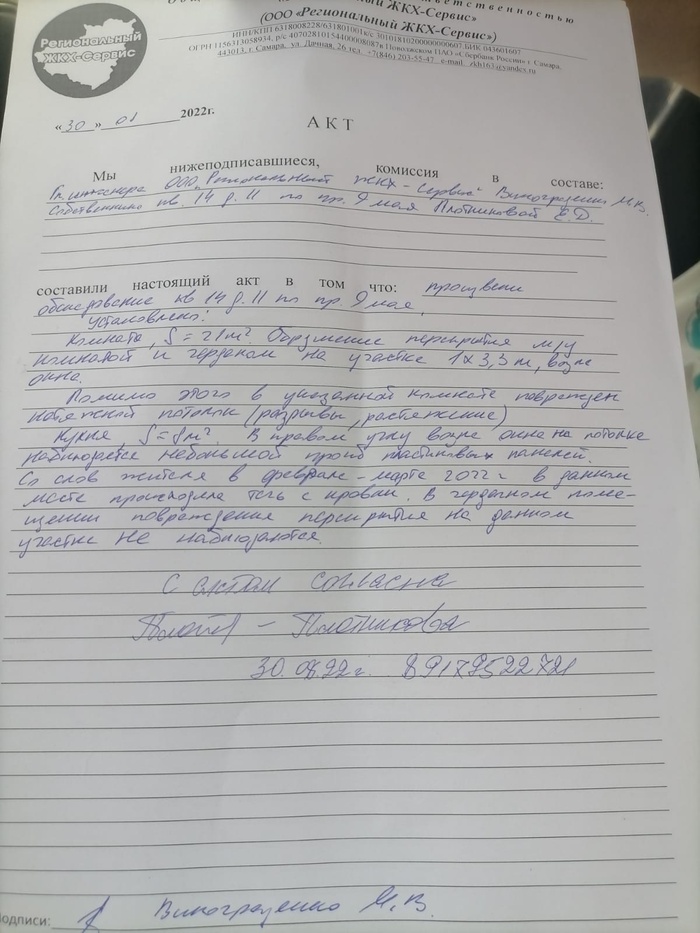 ЖКХ-Сервис»
(ООО «Региональный ЖКХ-Сервис»)
ИНН/КПП 6318008228/631801001 к/с 30101810200000000607 БИК 043601607
ОГРН 1156313058934, р/с 40702810154400008087в Поволжском ПАО «Сбербанк России» г. Самара,
443013, г. Самара, ул. Дачная, 26 тел. +7(846) 203-55-47 e-mail zkh163@yandex.ru
Региональный
ЖКХ-Сервис
«30» 01 2022г.
АКТ
Мы нижеподписавшиеся, комиссия в составе:
Гл. инженера ООО „Региональный ЖКХ-Сервис" М.В.
кв. 14 д. 11 по пр. 9 мая Плотниковой Е.Д.
составили настоящий акт в том что: произвели
обследование кв 14 д. 11 по пр. 9 мая,
Установлено:
Комната, S = 21м². Обрушение перекрытия м/у
комнатой и чердаком на участке 1х3,3 м, возле
окна.
Помимо этого в указанной комнате поврежден
натяжной потолок (разрывы, растяжение)
Кухня, S=8м². В правом углу возле окна на потолке
наблюдается небольшой прогиб пластиковых панелей.
Со слов жителя в феврале - марте 2022 г в данном
месте происходила течь с кровли. В чердачном поме-
щении повреждения перекрытия на данном
участке не наблюдаются.
С актом согласна
Плотникова
30.08.22г. 89179522721
Подписи: Виноградченко М.В.